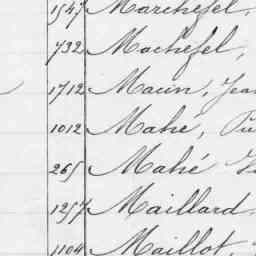 1547 Marchefel,
732 Mochefel,
1712 Maun, Jean
1012 Mahé,
265 Mahé
1257 Maillard
1104 Maillot,